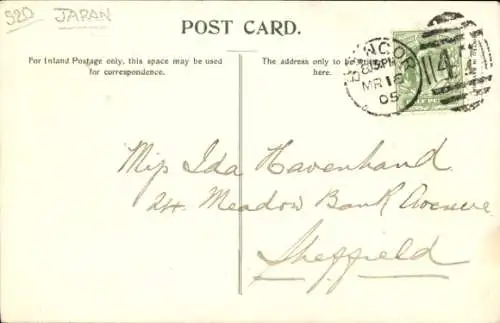 S20 JAPAN
POST CARD.
For Inland Postage only, this space may be used
for correspondence.
The address only to be
here.
BANGOR
MR 16
05
114
Miss Ida Havenhand
24. Meadow Bank Avenue
Sheffield